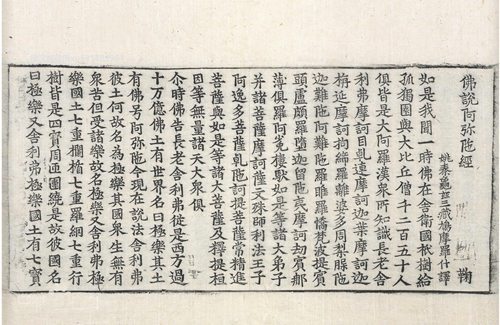 佛說阿弥陁経
姚秦龜茲三藏鳩摩羅什譯
鞠
如是我聞一時佛在舍衛國秪樹給
孤獨園與大比丘僧千二百五十人
俱皆是大阿羅漢衆所知識長老舍
利弗摩訶目乹連摩訶迦葉摩訶迦
栴延摩訶拘絺羅離婆多周梨槃陁
迦難陁阿難陁羅睺羅憍梵波提賓
頭盧頗羅墮迦留陁夷摩訶劫賓那
薄俱羅阿㝹樓馱如是等諸大弟子
并諸菩薩摩訶薩文殊師利法王子
阿逸多菩薩乹陁訶提菩薩常精進
菩薩與如是等諸大菩薩及釋提桓
因等無量諸天大衆俱
尒時佛告長老舍利弗從是西方過
十万億佛土有世界名曰極樂其土
有佛号阿弥陁今現在說法舍利弗
彼土何故名為極樂其國衆生無有
衆苦但受諸樂故名極樂又舍利弗極
樂國土七重欄楯七重羅網七重行
樹皆是四寶周迊圍繞是故彼國名
曰極樂又舍利弗極樂國土有七寶